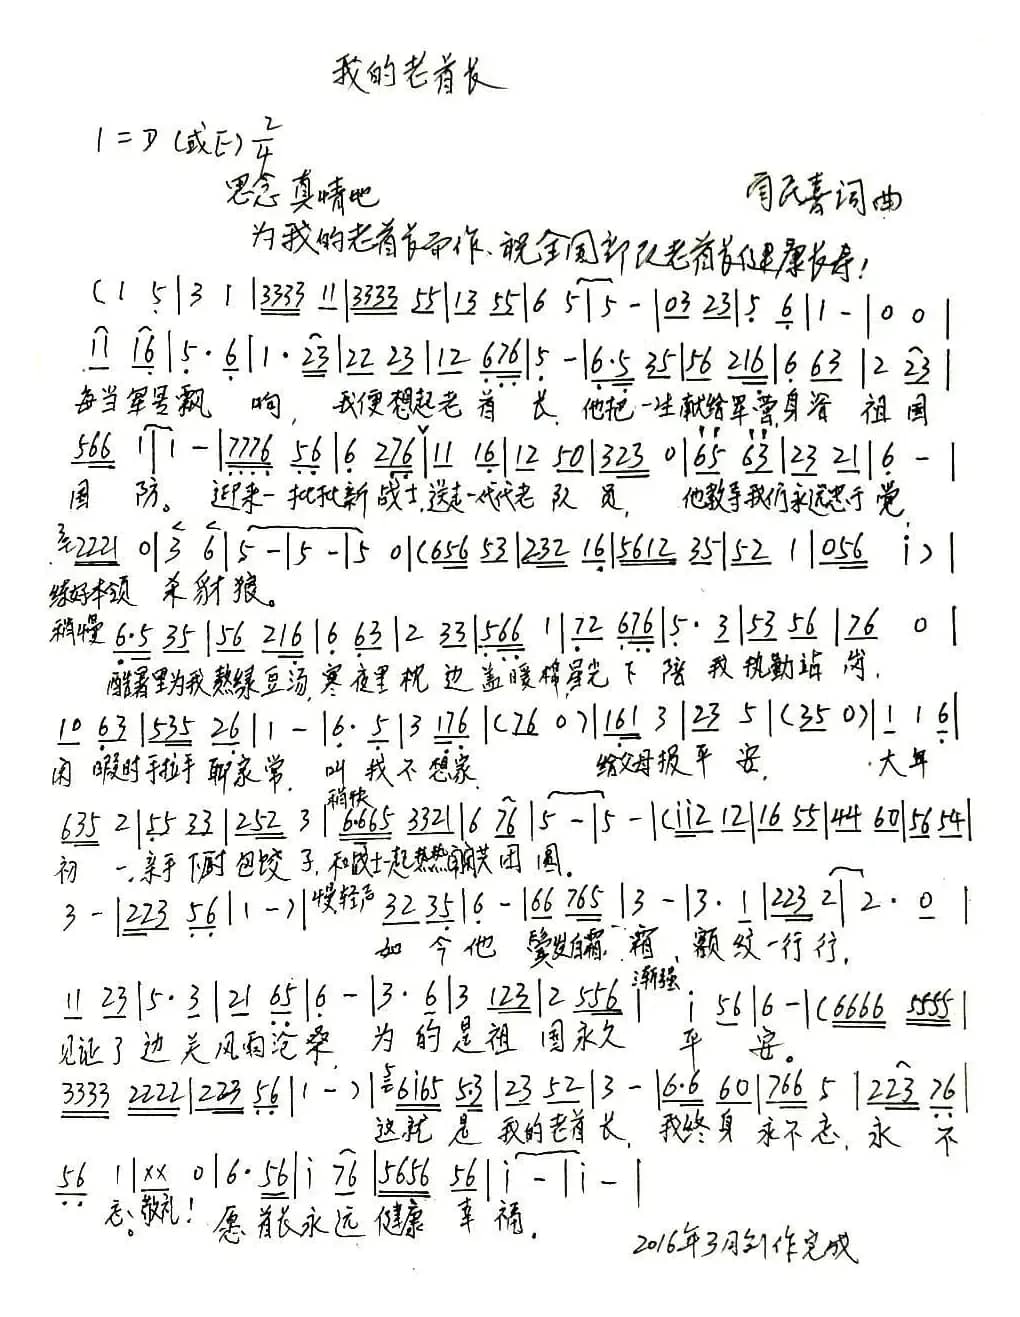 我的老首长
1=D(或E) 2/4
思念 真情地
民喜词曲
为我的老首长而作、祝全国部队老首长健康长寿!
(1 5|3 1|3333 11|3333 55|13 55|6 5|5 -|03 23|5 6|1 -|0 0|
11 16|5·6|1·23|22 23|12 676|5 -|6·5 35|56 216|6 63|2 23|
每当军号飘响, 我便想起老首长, 他把一生献给军营,身省 祖国
566 1|1 -|7776 56|6 276|11 16|12 50|323 0|65 63|23 21|6 -|
国防。 迎来一批批新战士,送走一代代老队员, 他教导我们永远忠于党
2221 0|3 6|5 -|5 -|5 0|(656 53|232 16|5612 35|52 1|056 i)|
练好本领 杀豺狼。
稍慢 6·5 35|56 216|6 63|2 33|566 1|72 676|5·3|53 56|76 0|
酷暑里为我熬绿豆汤,寒夜里枕边盖暖棉,星光下陪我执勤站岗,
10 63|535 26|1 -|6·5|3 176|(76 0)|161 3|23 5|(35 0)|1 1 6|
闲暇时手拉手聊家常, 叫我不想家, 给父母报平安, 大年
稍快
635 2|55 33|252 3|6·665 3321|6 76|5 -|5 -|(ii2 12|16 55|44 60|56 54|
初一,亲手下厨包饺子,和战士一起热热闹闹共团圆。
3 -|223 56|1 -)|慢轻声 32 35|6 -|66 765|3 -|3·1|223 2|2·0|
如今他 鬓发白霜霜,额纹一行行,
渐强
11 23|5·3|21 65|6 -|3·6|3 123|2 556|i 56|6 -|(6666 5555|
见证了边关风雨沧桑, 为的是祖国永久平安。
3333 2222|223 56|1 -)|6i65 5·3|23 52|3 -|6·6 60|766 5|223 76|
这就是我的老首长, 我终身永不忘,永不
56 1|xx 0|6·56|i 76|5656 56|i -|i -|
忘。敬礼! 愿首长永远健康幸福。
2016年3月创作完成